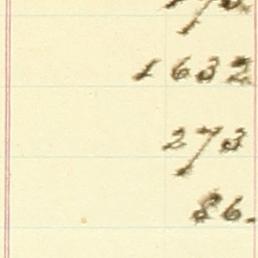 1632
273
86.